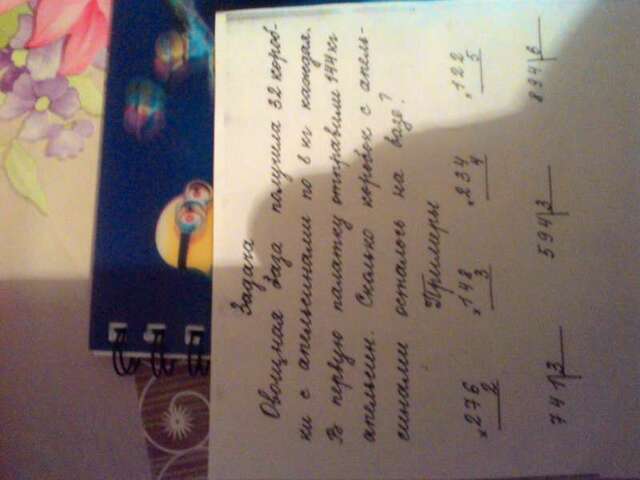 Задача
Овощная база получила 32 короб-
ки с апельсинами по 8 кг каждая.
В первую палатку отправили 144 кг
апельсин. Сколько коробок с апель-
синами осталось на базе?
Примеры
×276 ×148 ×234 ×122
2 3 4 5
741|3 594|3 894|6